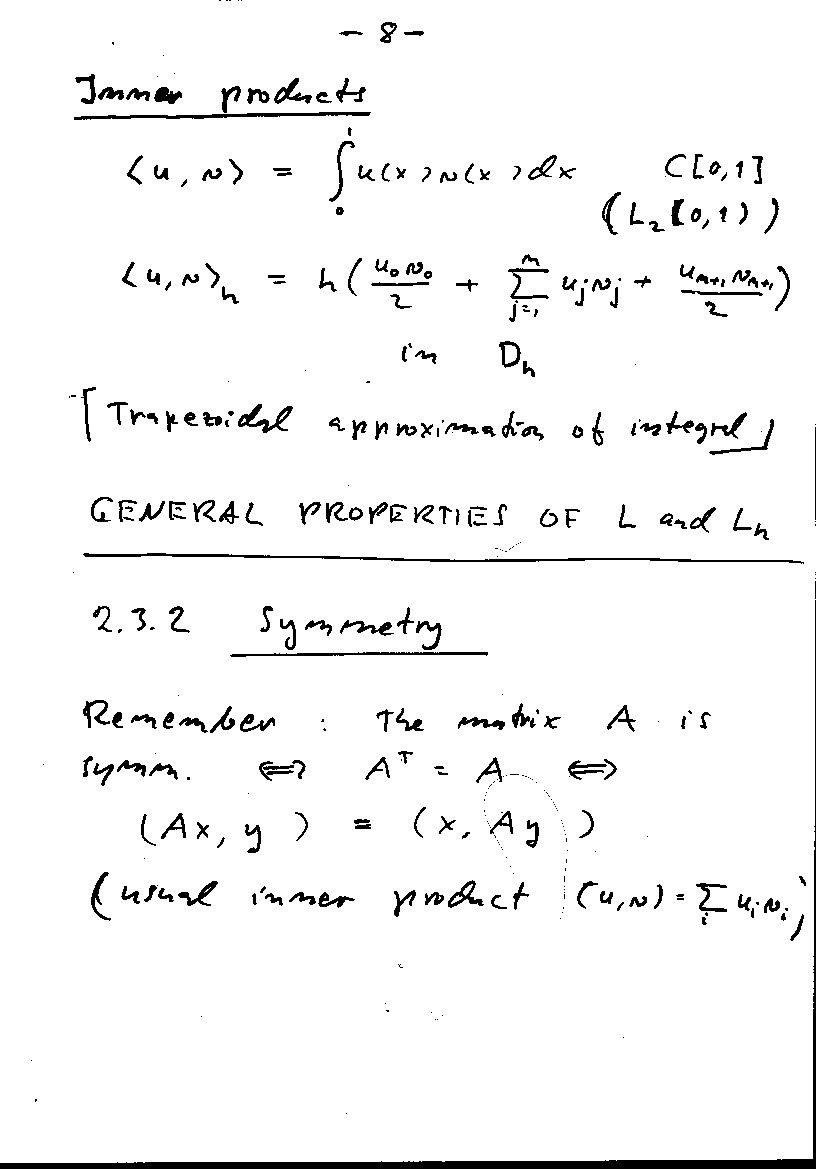 - 8 -
Inner products
⟨u, v⟩ = ∫₀¹ u(x) v(x) dx C[0,1]
(L₂(0,1))
⟨u, v⟩ₕ = h (u₀v₀/2 + ∑ⱼ₌₁ⁿ uⱼvⱼ + uₙ₊₁vₙ₊₁/2)
in Dₕ
⌈Trapezoidal approximation of integral⌋
GENERAL PROPERTIES OF L and Lₕ
2.3.2 Symmetry
Remember : The matrix A is
symm. ⟺ Aᵀ = A ⟺
(Ax, y) = (x, Ay)
(usual inner product (u,v) = ∑ᵢ uᵢvᵢ)